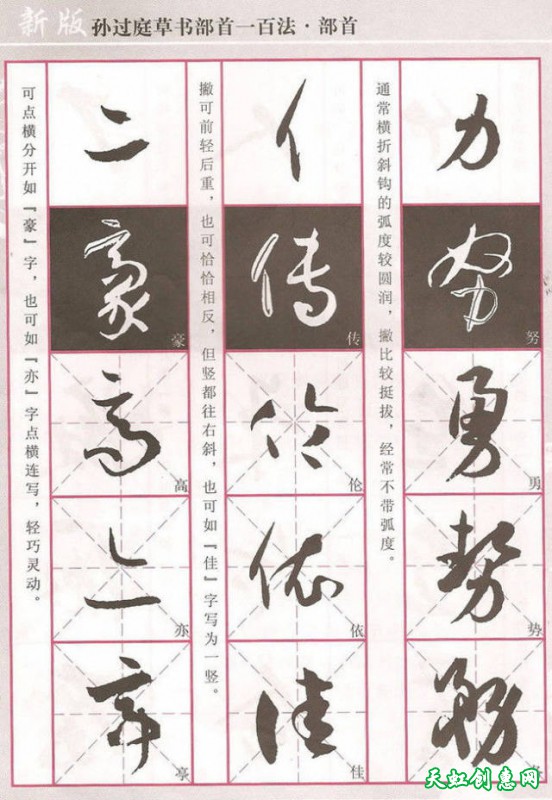 新版 孙过庭草书部首一百法·部首
力
通常横折斜钩的弧度较圆润，撇比较挺拔，经常不带弧度。
努
努
勇
勇
势
势
亻
撇可前轻后重，也可恰恰相反，但竖都往右斜，也可如『佳』字写为一竖。
传
传
伦
伦
依
依
佳
佳
亠
可点横分开如『豪』字，也可如『亦』字点横连写，轻巧灵动。
豪
豪
高
高
亦
亦
亭
天虹创惠网